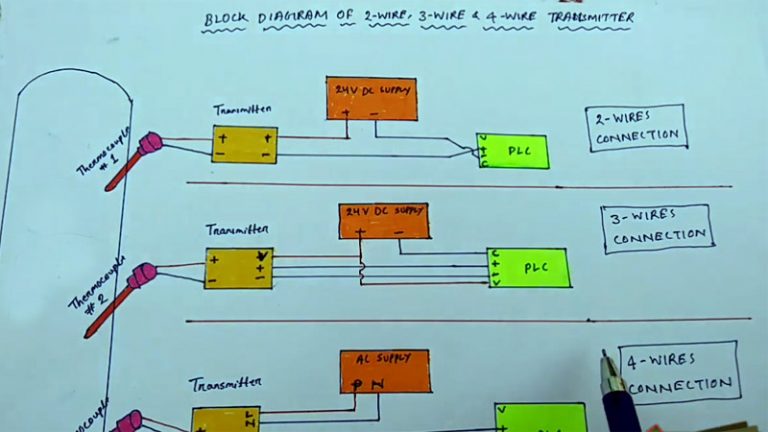 BLOCK DIAGRAM OF 2-WIRE, 3-WIRE & 4-WIRE TRANSMITTER
24V DC SUPPLY
+ −
Transmitter
+ +
− −
Thermocouple
# 1
V
+
C
PLC
2-WIRES
CONNECTION
24V DC SUPPLY
+ −
Transmitter
+ V
+
− −
Thermocouple
# 2
C
+
+
V
PLC
3-WIRES
CONNECTION
AC SUPPLY
P N
Transmitter
V
PLC
4-WIRES
CONNECTION